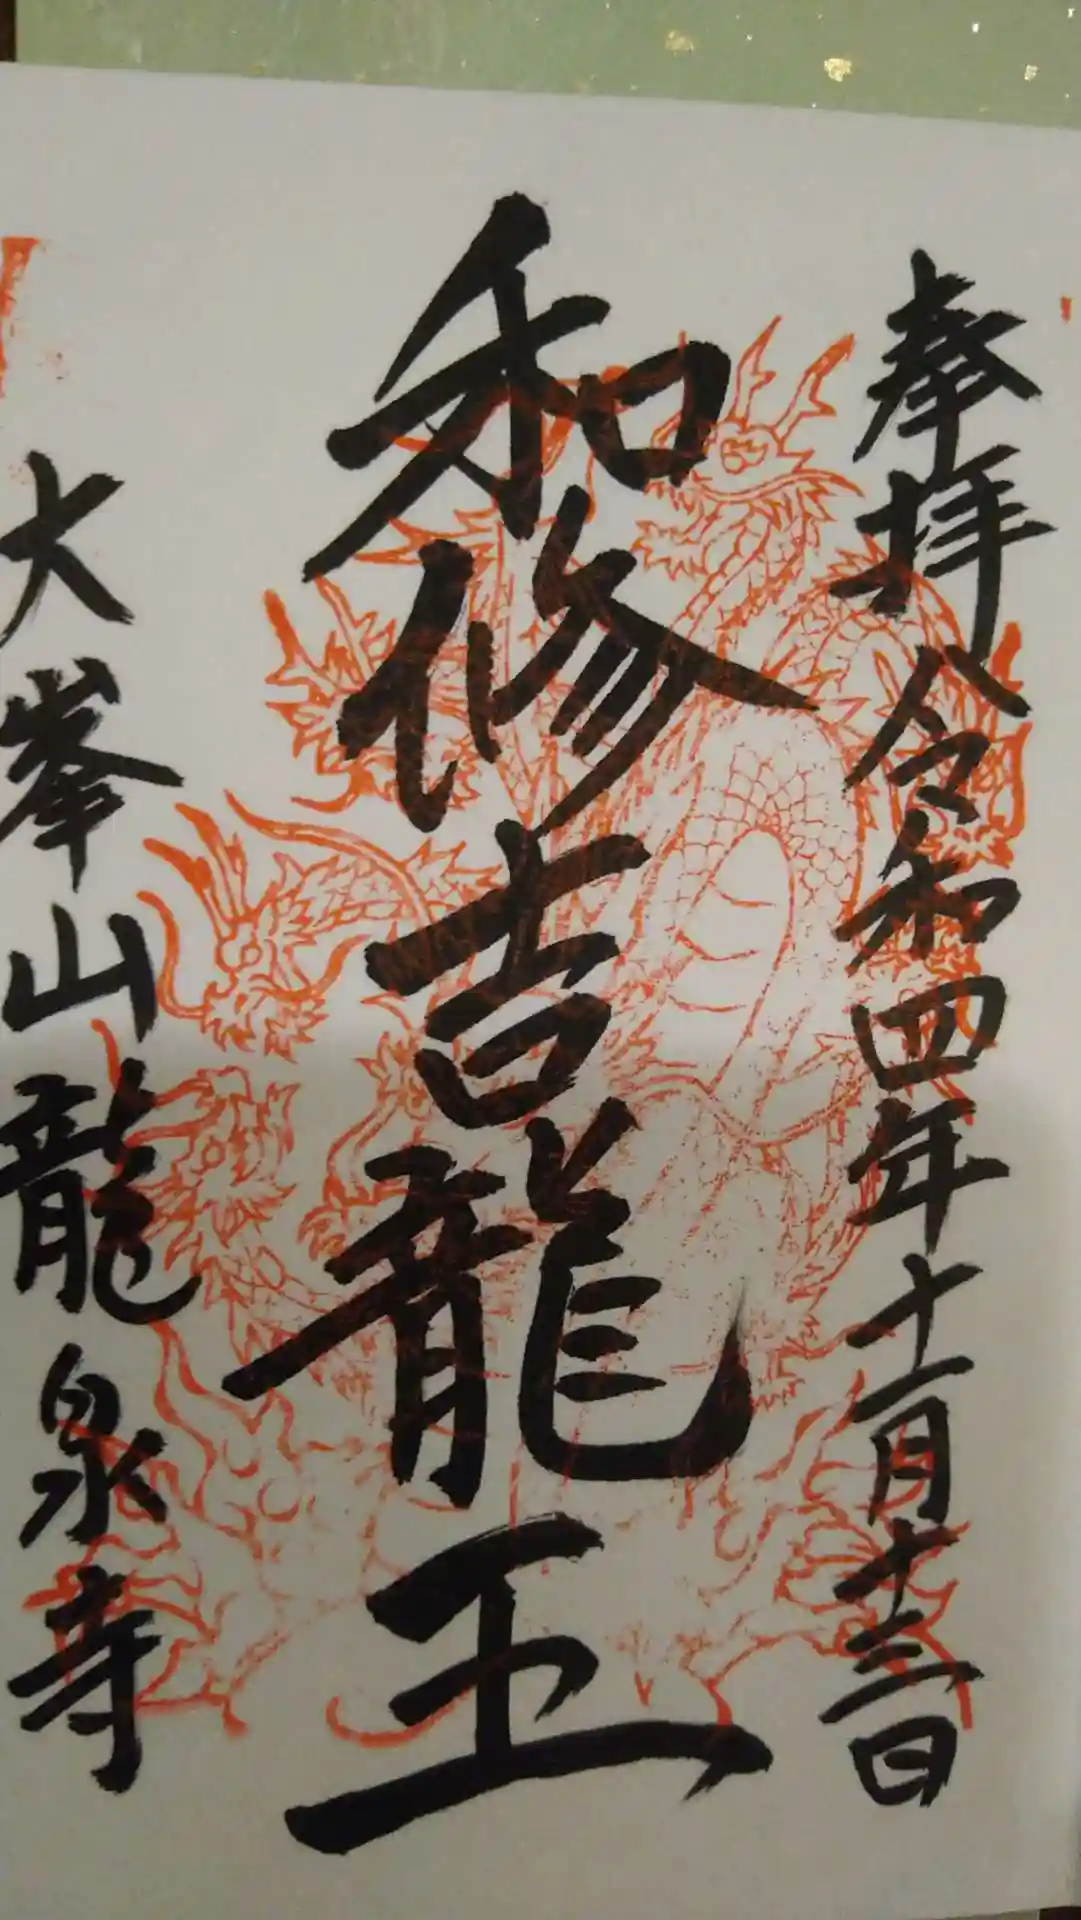 奉拝 令和四年十一月十三日
和修吉龍王
大峯山龍泉寺